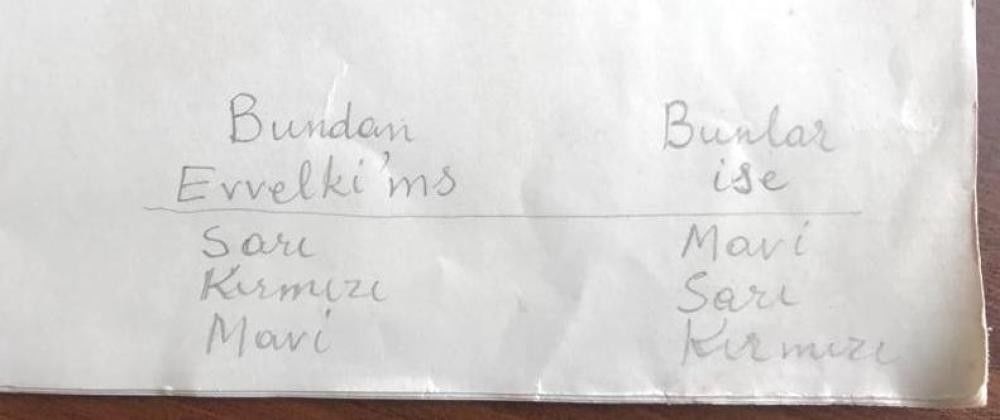 Bundan Bunlar
Evvelki'ms ise
Sarı Mavi
Kırmızı Sarı
Mavi Kırmızı